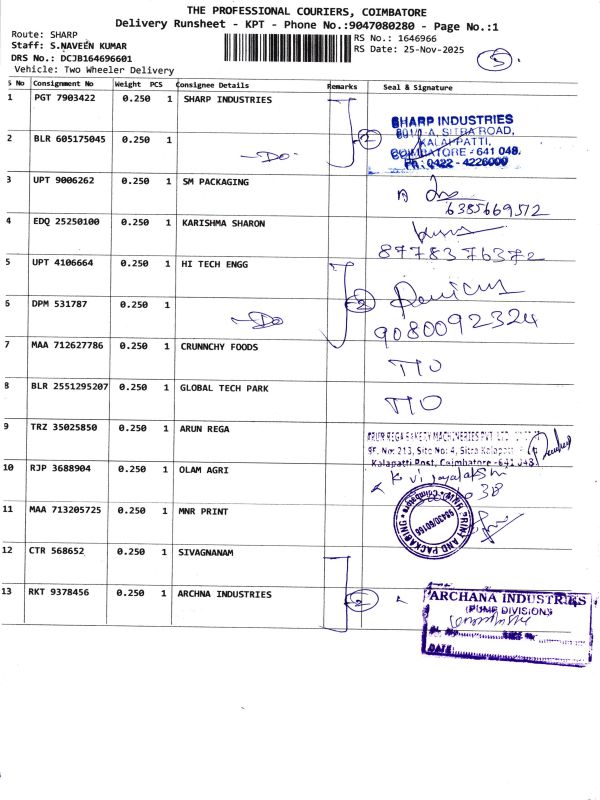 THE PROFESSIONAL COURIERS, COIMBATORE
Delivery Runsheet - KPT - Phone No.:9047080280 - Page No.:1
Route: SHARP
RS No.: 1646966
Staff: S.NAVEEN KUMAR
RS Date: 25-Nov-2025
DRS No.: DCJB164696601
5
Vehicle: Two Wheeler Delivery
S No Consignment No Weight PCS Consignee Details Remarks Seal & Signature
1 PGT 7903422 0.250 1 SHARP INDUSTRIES
SHARP INDUSTRIES
SITRA ROAD,
KALAPATTI,
COIMBATORE - 641 048.
Ph: 0422 - 4226000
2 BLR 605175045 0.250 1 -Do- 2
3 UPT 9006262 0.250 1 SM PACKAGING
6385669512
4 EDQ 25250100 0.250 1 KARISHMA SHARON
8778376372
5 UPT 4106664 0.250 1 HI TECH ENGG
6 DPM 531787 0.250 1 -Do 2
9080092324
7 MAA 712627786 0.250 1 CRUNNCHY FOODS
TTO
8 BLR 2551295207 0.250 1 GLOBAL TECH PARK
TTO
9 TRZ 35025850 0.250 1 ARUN REGA
ARUN REGA BAKERY MACHINERIES PVT LTD
SF. No: 213, Site No: 4, Sitra Kalapatti
Kalapatti Post, Coimbatore - 641 048
10 RJP 3688904 0.250 1 OLAM AGRI
K vijayalakshmi
11 MAA 713205725 0.250 1 MNR PRINT
MNR PRINT AND PACKAGING
12 CTR 568652 0.250 1 SIVAGNANAM
13 RKT 9378456 0.250 1 ARCHNA INDUSTRIES 2
ARCHANA INDUSTRIES
(PUMP DIVISION)
DATE